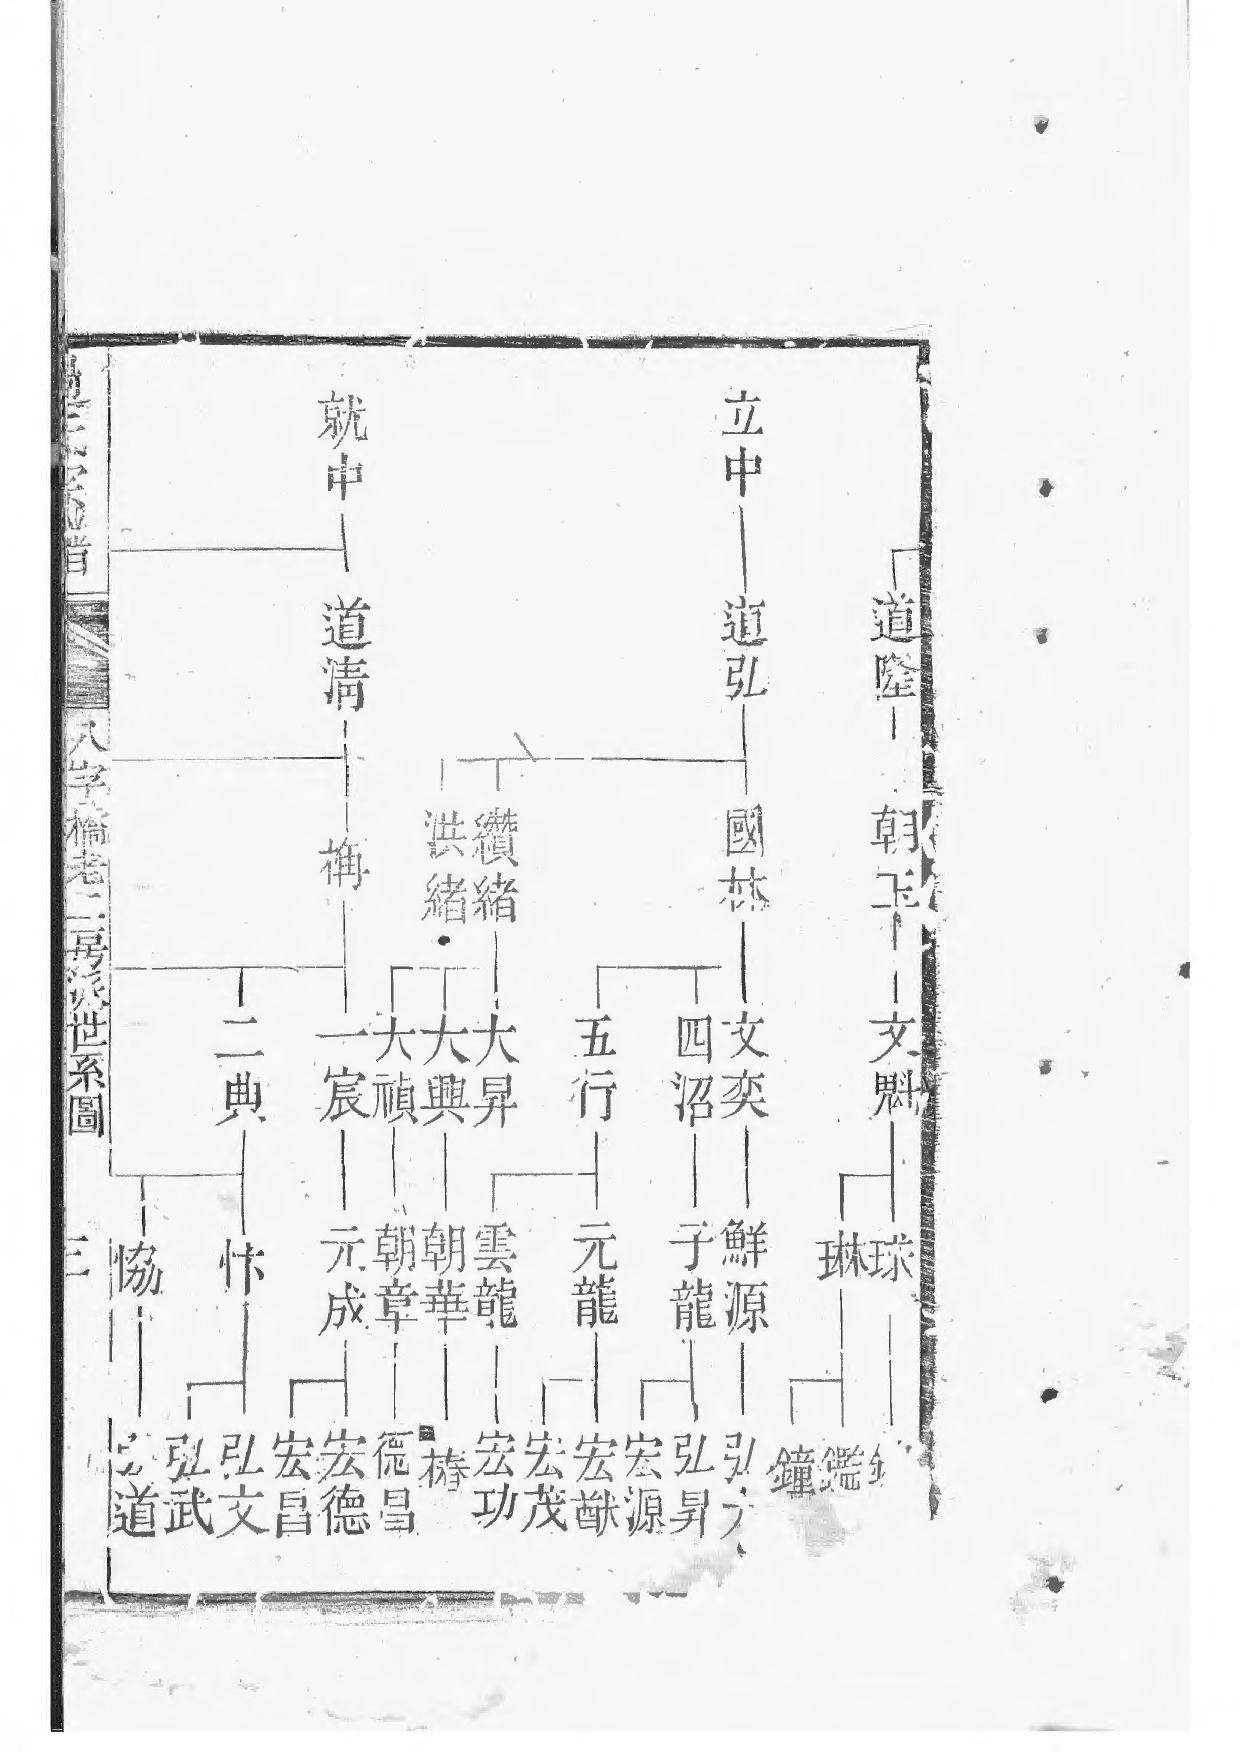 立中
就中
道隆
道弘
道清
朝玉
國林
纘緒
洪緒
文魁
文奕
四沼
五行
大昇
大興
大禎
一宸
二典
球
琳
鮮源
子龍
元龍
雲龍
朝華
朝章
元成
忭
恊
鑑
鐘
弘
弘昇
宏源
宏猷
宏茂
宏功
椿
德昌
宏德
宏昌
弘文
弘武
道
氏宗譜
八字橋老二房派世系圖
三